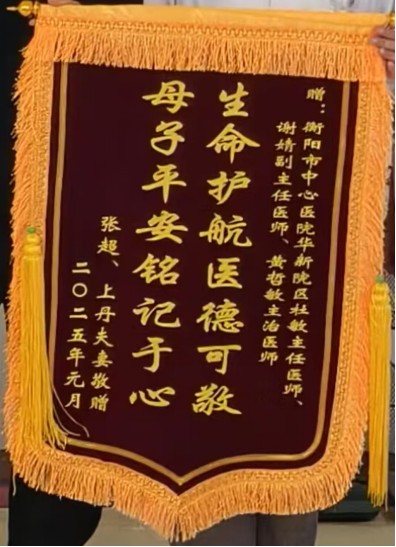 赠：衡阳市中心医院华新医院区杜敏主任医师、
谢婧副主任医师、黄哲敏主治医师
生命护航医德可敬
母子平安铭记于心
张超、上丹夫妻敬赠
二〇二五年元月